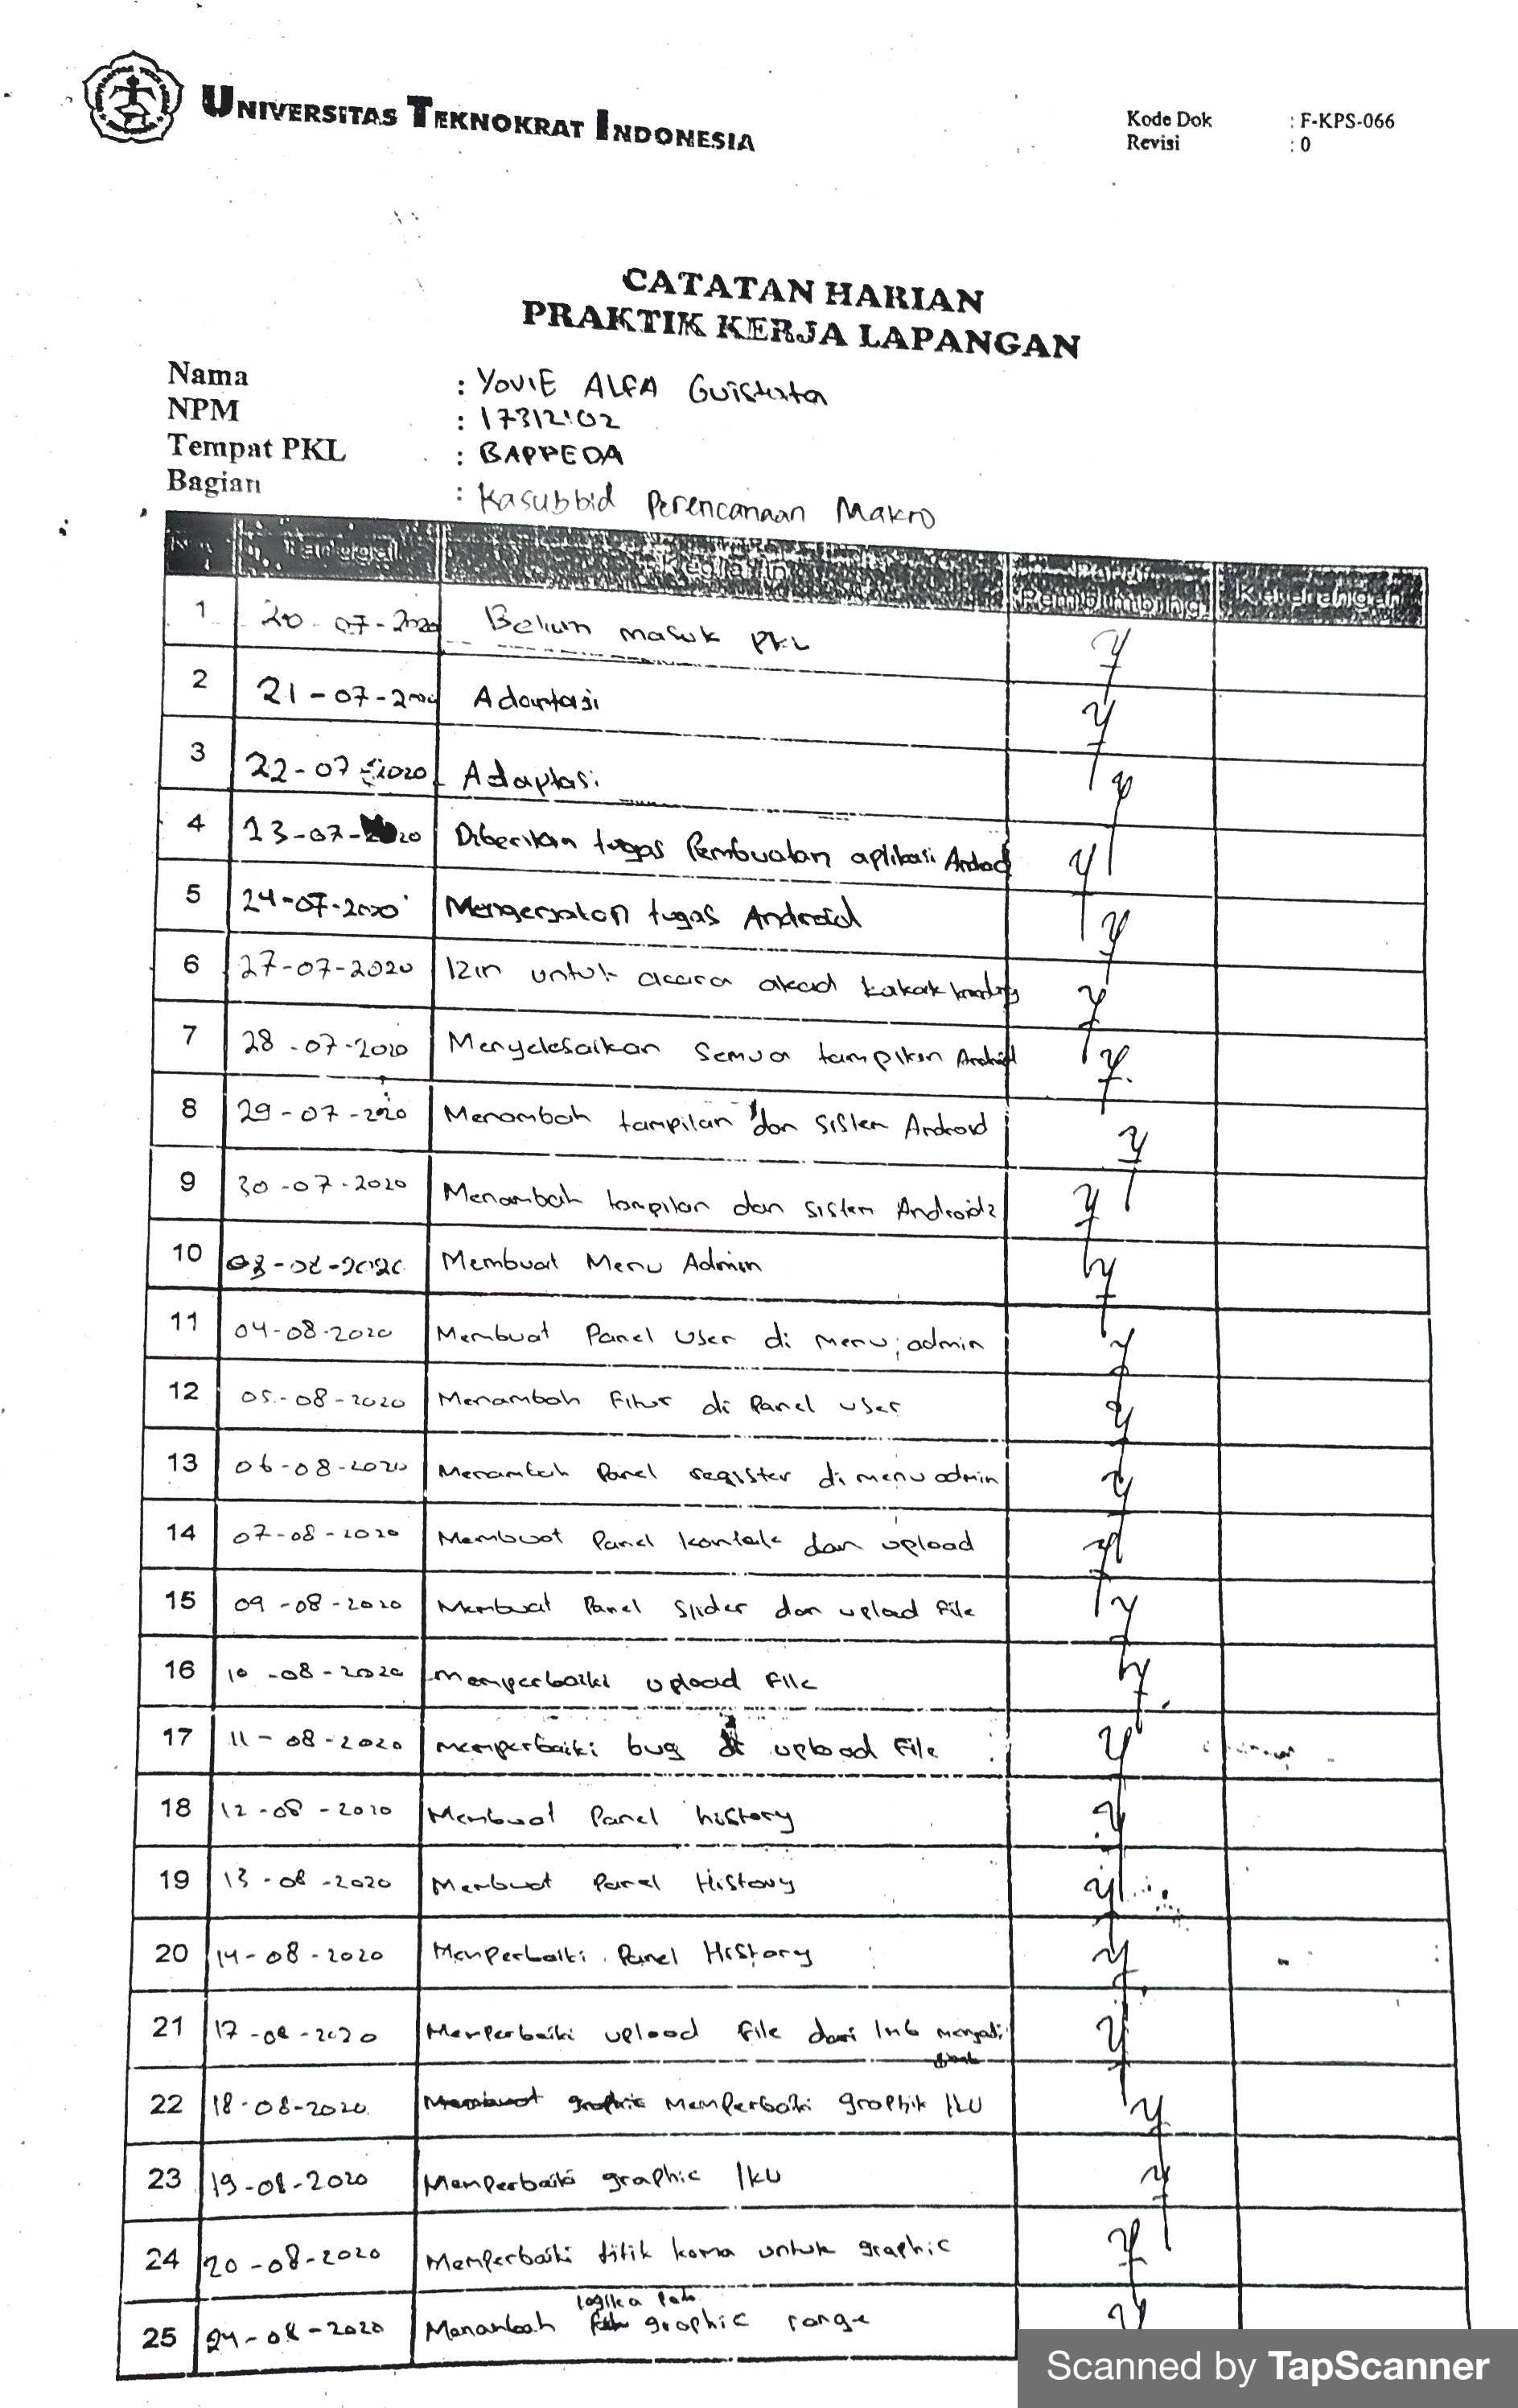 UNIVERSITAS TEKNOKRAT INDONESIA
Kode Dok : F-KPS-066
Revisi : 0
CATATAN HARIAN
PRAKTIK KERJA LAPANGAN
Nama : YOVIE ALFA Guistuta
NPM : 17312102
Tempat PKL : BAPPEDA
Bagian : Kasubbid Perencanaan Makro
No Tanggal Kegiatan Paraf Pembimbing Keterangan
1 20-07-2020 Belum masuk PKL
2 21-07-2020 Adaptasi
3 22-07-2020 Adaptasi
4 23-07-2020 Diberikan tugas Pembuatan aplikasi Android
5 24-07-2020 Mengerjakan tugas Android
6 27-07-2020 Izin untuk acara akad kakak kandung
7 28-07-2020 Menyelesaikan semua tampilan Android
8 29-07-2020 Menambah tampilan dan sistem Android
9 30-07-2020 Menambah tampilan dan sistem Android
10 03-08-2020 Membuat Menu Admin
11 04-08-2020 Membuat Panel User di menu admin
12 05-08-2020 Menambah Fitur di Panel User
13 06-08-2020 Menambah Panel register di menu admin
14 07-08-2020 Membuat Panel kontak dan upload
15 09-08-2020 Membuat Panel Slider dan upload File
16 10-08-2020 Memperbaiki upload File
17 11-08-2020 Memperbaiki bug di upload File
18 12-08-2020 Membuat Panel history
19 13-08-2020 Membuat Panel History
20 14-08-2020 Memperbaiki Panel History
21 17-08-2020 Memperbaiki upload File dari menjadi
22 18-08-2020 Membuat graphic Memperbaiki graphik IKU
23 19-08-2020 Memperbaiki graphic IKU
24 20-08-2020 Memperbaiki titik koma untuk graphic
logika
25 24-08-2020 Menambah graphic range
Scanned by TapScanner